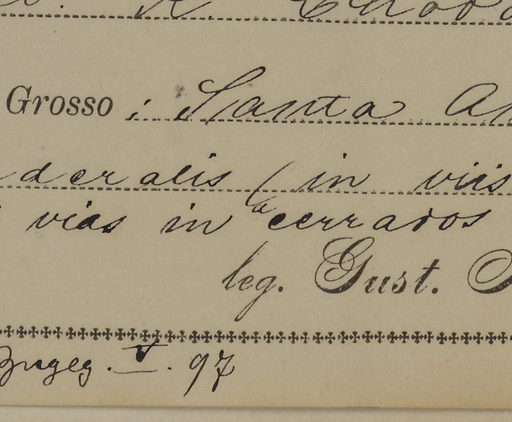 Grosso ; Santa An
deralis (in viis
vias in "cerrados
leg. Gust.
Zugeg. V. 97